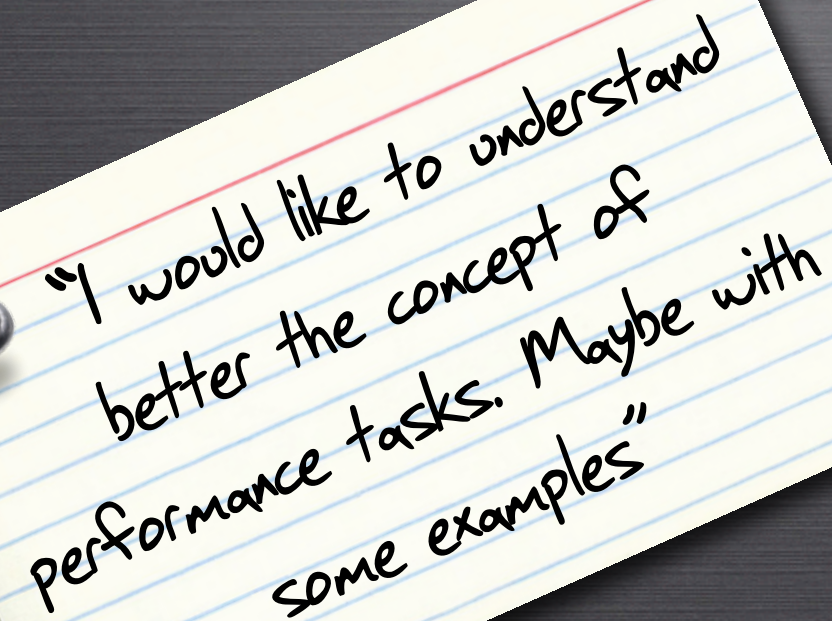 “I would like to understand
better the concept of
performance tasks. Maybe with
some examples”